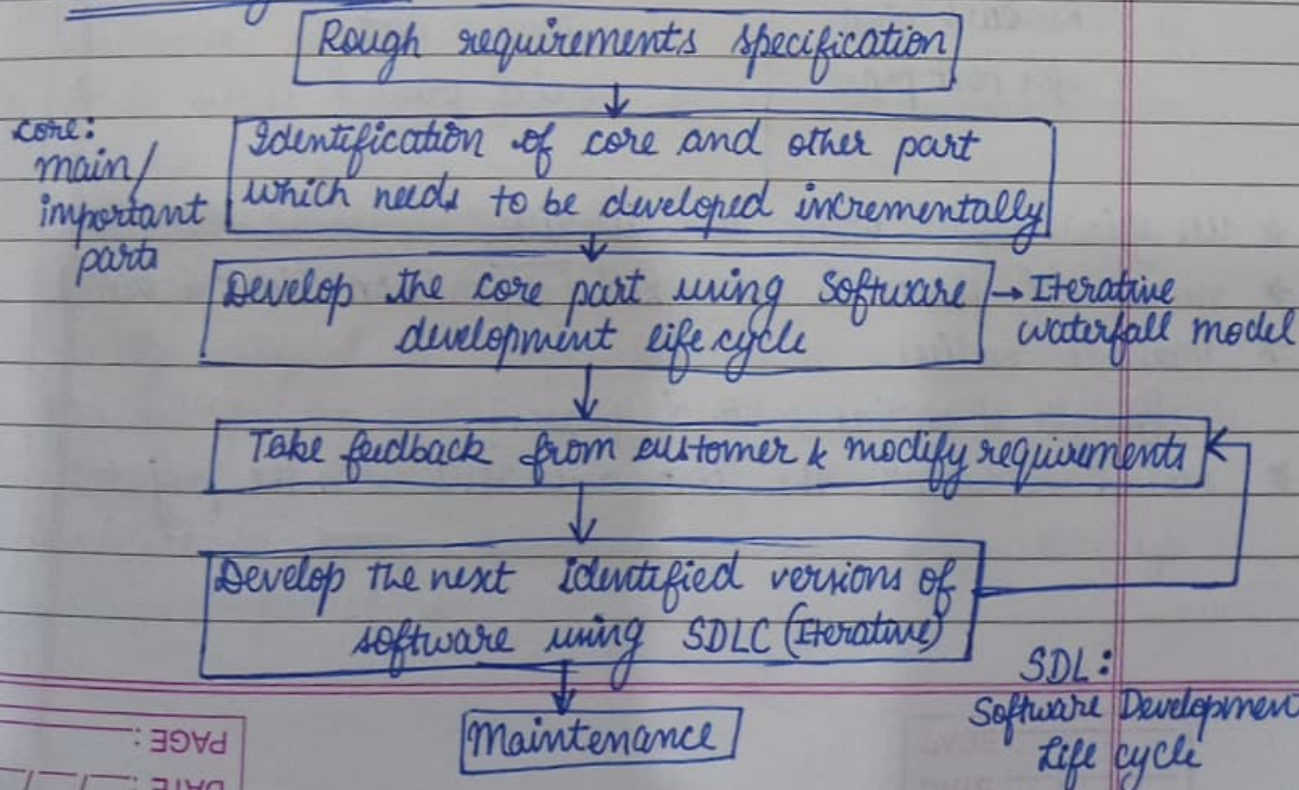 Rough requirements specification
core:
main/
important
parts
Identification of core and other part
which needs to be developed incrementally
Develop the core part using Software
development life cycle
→ Iterative
waterfall model
Take feedback from customer & modify requirements
Develop the next identified versions of
software using SDLC (Iterative)
SDL:
Software Developmen
Life cycle
Maintenance
PAGE:
DATE: